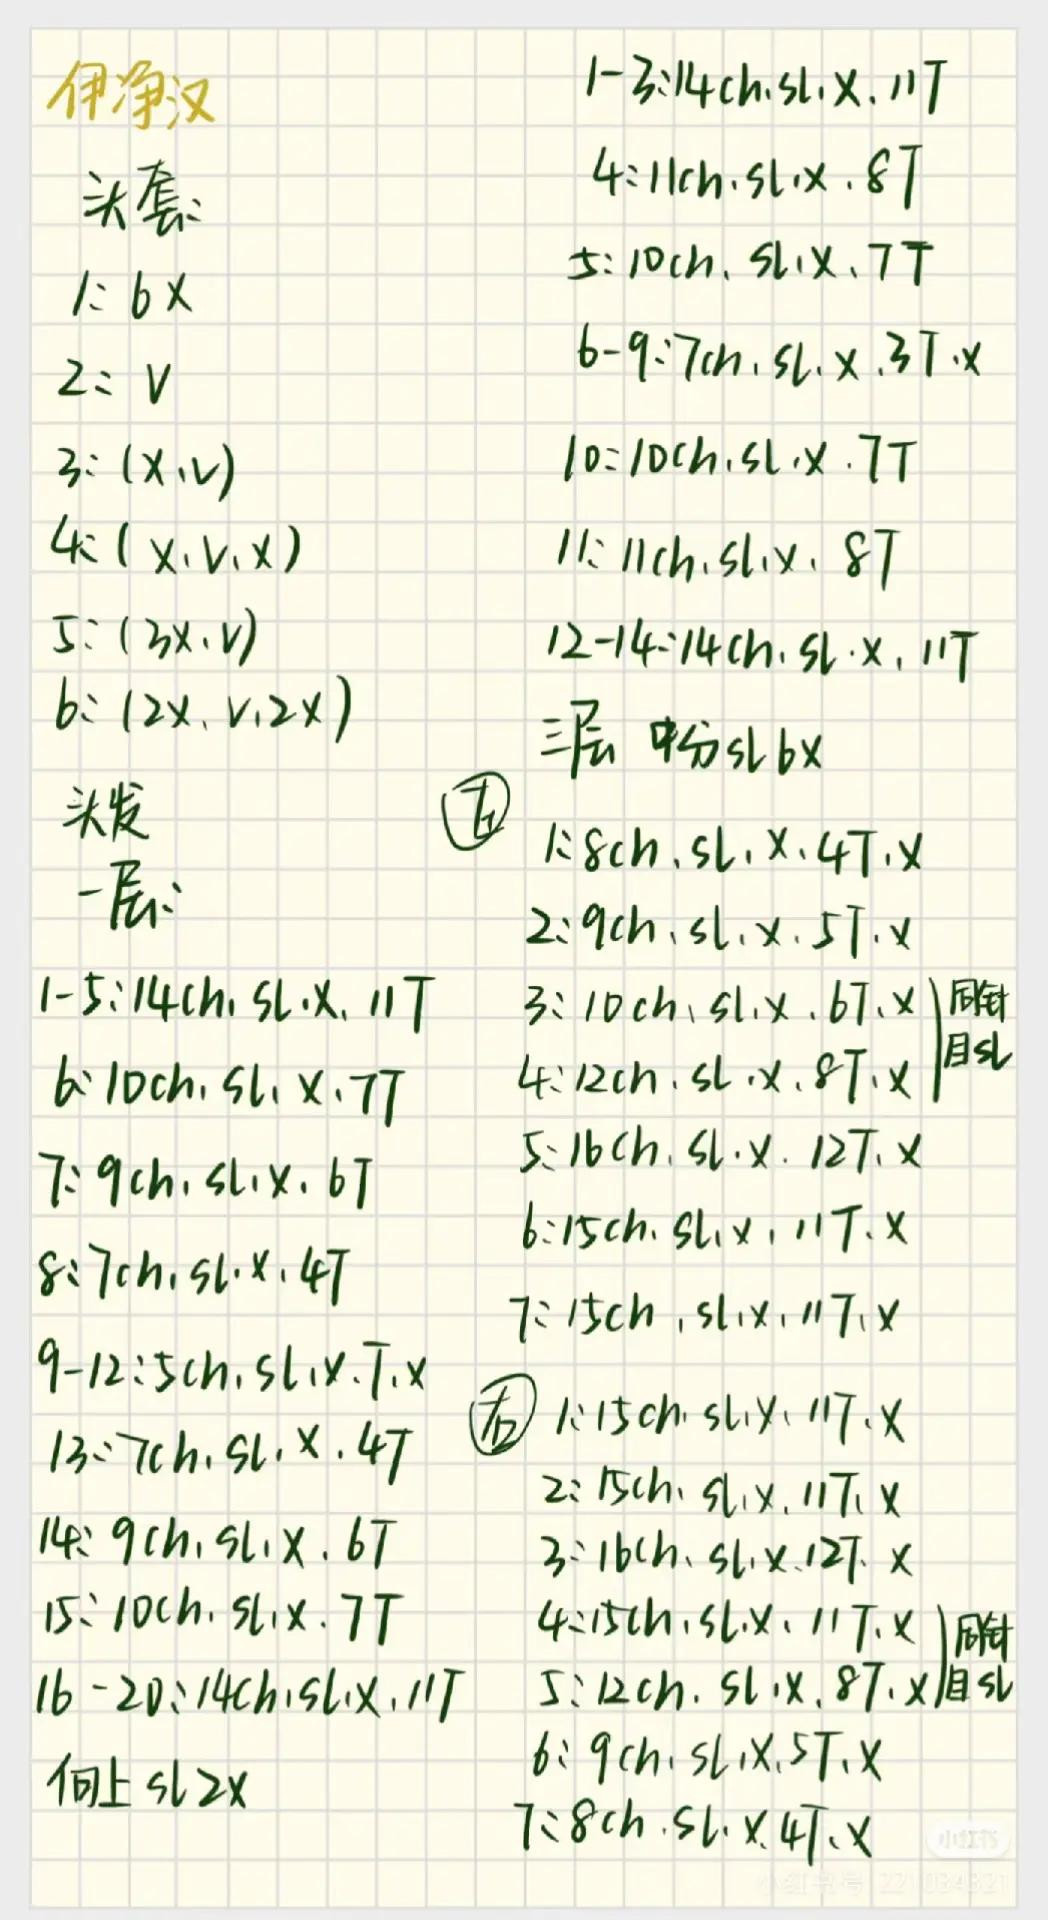 伊净汉
头套:
1: 6X
2: V
3: (X.V)
4: (X.V.X)
5: (3X.V)
6: (2X.V.2X)
头发
一层:
1-5:14ch.sl.X.11T
6:10ch.sl.X.7T
7:9ch.sl.X.6T
8:7ch.sl.X.4T
9-12:5ch.sl.X.T.X
13:7ch.sl.X.4T
14:9ch.sl.X.6T
15:10ch.sl.X.7T
16-20:14ch.sl.X.11T
向上sl2X
1-3:14ch.sl.X.11T
4:11ch.sl.X.8T
5:10ch.sl.X.7T
6-9:7ch.sl.X.3T.X
10:10ch.sl.X.7T
11:11ch.sl.X.8T
12-14:14ch.sl.X.11T
三层 中分sl6X
左
1:8ch.sl.X.4T.X
2:9ch.sl.X.5T.X
3:10ch.sl.X.6T.X 同针
4:12ch.sl.X.8T.X 目sl
5:16ch.sl.X.12T.X
6:15ch.sl.X.11T.X
7:15ch.sl.X.11T.X
右 1:15ch.sl.X.11T.X
2:15ch.sl.X.11T.X
3:16ch.sl.X.12T.X
4:15ch.sl.X.11T.X 同针
5:12ch.sl.X.8T.X 目sl
6:9ch.sl.X.5T.X
7:8ch.sl.X.4T.X
小红书
小红书号 221034321